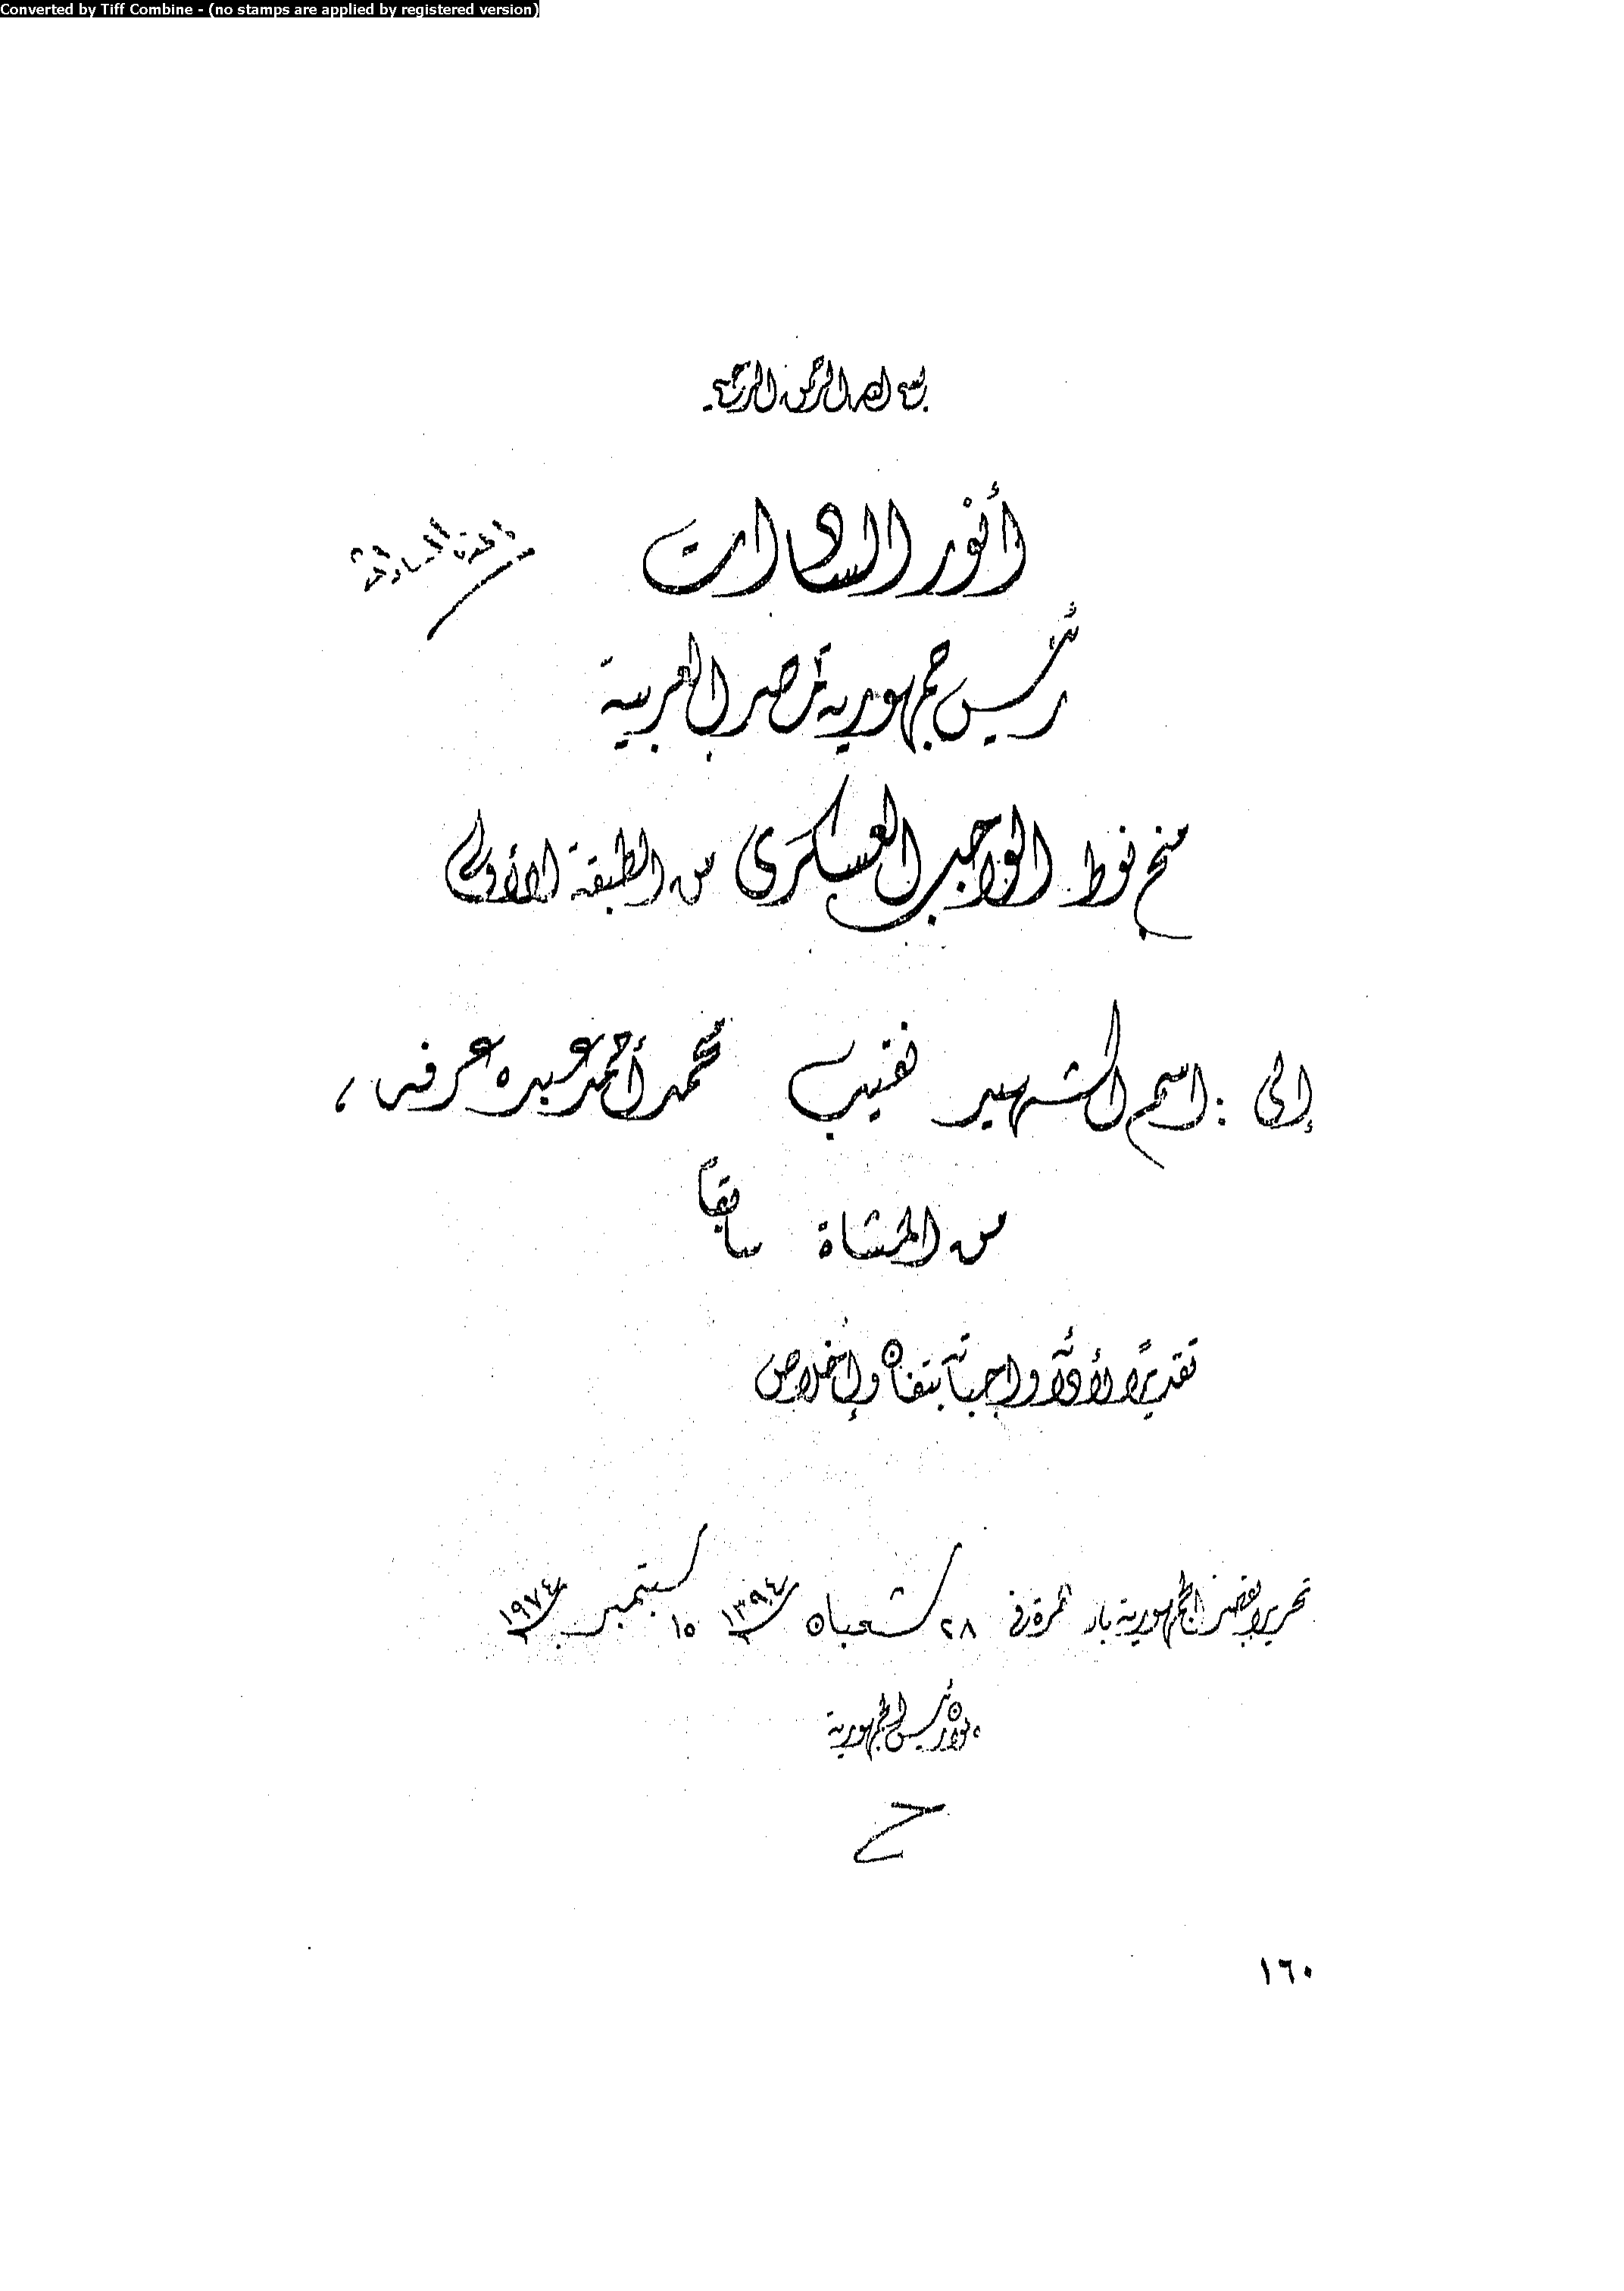 Converted by Tiff Combine - (no stamps are applied by registered version)
بسم الله الرحمن الرحيم
أنور السادات
رئيس جمهورية مصر العربية
منح نوط الواجب العسكرى من الطبقة الأولى
إلى : اسم الشهيد نقيب محمد أحمد عبده عرفه ،
من المشاة سابقاً
تقديرًا لأداء واجباته بتفان وإخلاص
تحريرا بقصر الجمهورية بالقاهرة فى ٢٨ شعبان ١٣٩٤ ١٥ سبتمبر ١٩٧٤
رئيس الجمهورية
١٦٠